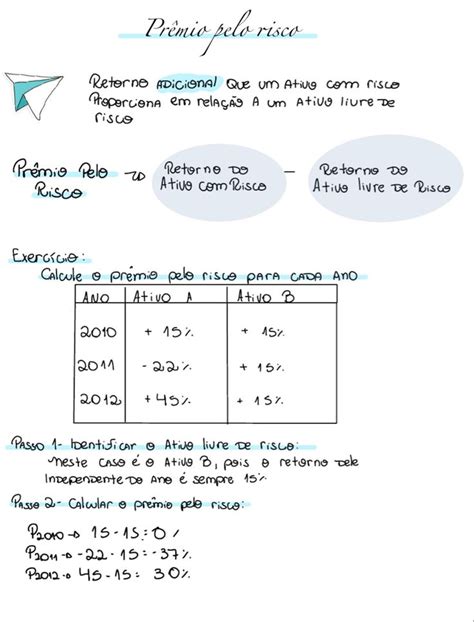 Prêmio pelo risco
Retorno ADICIONAL Que um Ativo com risco
Proporciona em relação A um Ativo livre De
risco
Prêmio Pelo Risco → Retorno Do Ativo com Risco - Retorno Do Ativo livre De Risco
Exercício:
Calcule o prêmio pelo risco PARA CADA ANO
ANO Ativo A Ativo B
2010 + 15% + 15%
2011 - 22% + 15%
2012 + 45% + 15%
Passo 1- Identificar o Ativo livre De risco:
Neste caso é o Ativo B, pois o retorno dele
Independente do Ano é sempre 15%
Passo 2- Calcular o prêmio pelo risco:
P2010 → 15 - 15 = 0%
P2011 → -22 - 15 = -37%
P2012 → 45 - 15 = 30%